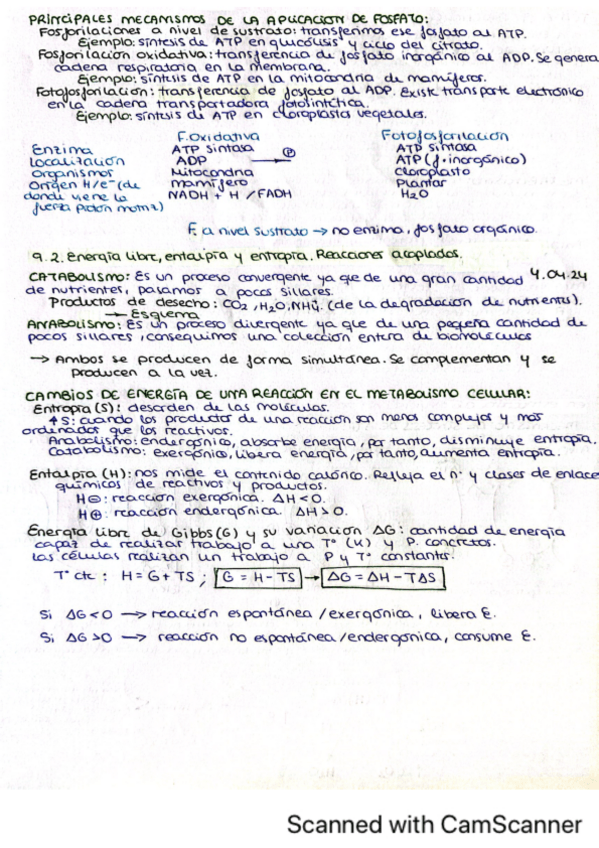 PRINCIPALES MECANISMOS DE LA APLICACIÓN DE FOSFATO:
Fosforilaciones a nivel de sustrato: transferimos ese fosfato al ATP.
Ejemplo: síntesis de ATP en glucólisis y ciclo del citrato.
Fosforilación oxidativa: transferencia de fosfato inorgánico al ADP. Se genera
cadena respiratoria en la membrana.
Ejemplo: síntesis de ATP en la mitocondria de mamíferos.
Fotofosforilación: transferencia de fosfato al ADP. Existe transporte electrónico
en la cadena transportadora fotosintética.
Ejemplo: síntesis de ATP en cloroplastos vegetales.
F. Oxidativa Fotofosforilación
Enzima ATP sintasa ATP sintasa
Localización ADP → P ATP (f. inorgánico)
Organismos Mitocondria Cloroplasto
Origen H/e⁻ (de Mamífero Plantas
donde viene la NADH + H / FADH H₂O
fuerza protón motriz)
F. a nivel sustrato → no enzima, fosfato orgánico.
9.2. Energía libre, entalpía y entropía. Reacciones acopladas.
4.04.24
CATABOLISMO: Es un proceso convergente ya que de una gran cantidad
de nutrientes, pasamos a pocos sillares.
Productos de desecho: CO₂, H₂O, NH₄. (de la degradación de nutrientes).
→ Esquema
ANABOLISMO: Es un proceso divergente ya que de una pequeña cantidad de
pocos sillares, conseguimos una colección entera de biomoléculas
→ Ambos se producen de forma simultánea. Se complementan y se
producen a la vez.
CAMBIOS DE ENERGÍA DE UNA REACCIÓN EN EL METABOLISMO CELULAR:
Entropía (S): desorden de las moléculas.
↑S: cuando los productos de una reacción son menos complejos y más
ordenados que los reactivos.
Anabolismo: endergónico, absorbe energía, por tanto, disminuye entropía.
Catabolismo: exergónico, libera energía, por tanto, aumenta entropía.
Entalpía (H): nos mide el contenido calórico. Refleja el nº y clases de enlaces
químicos de reactivos y productos.
H⊖: reacción exergónica. ΔH<0.
H⊕: reacción endergónica. ΔH>0.
Energía libre de Gibbs (G) y su variación ΔG: cantidad de energía
capaz de realizar trabajo a una Tº (K) y P. concretos.
Las células realizan un trabajo a P y Tº constantes.
Tº cte: H = G + TS ; G = H - TS → ΔG = ΔH - TΔS
Si ΔG<0 → reacción espontánea / exergónica, libera E.
Si ΔG>0 → reacción no espontánea / endergónica, consume E.
Scanned with CamScanner